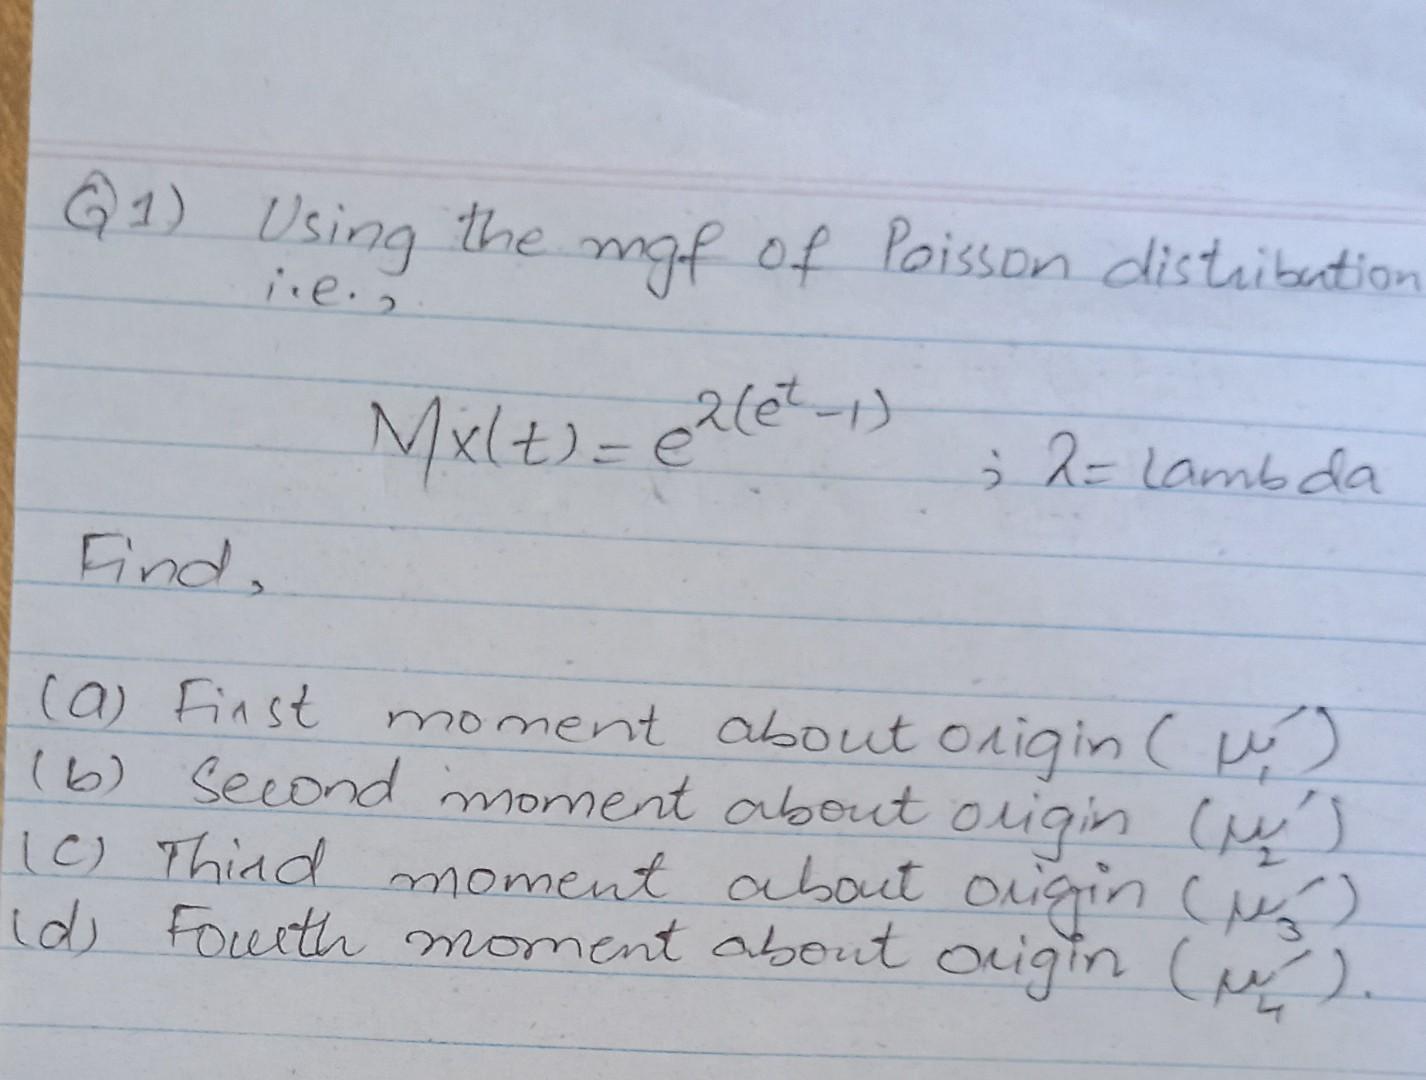 Q1) Using the mgf of Poisson distribution
i.e.,
Mx(t) = e^λ(e^t - 1) ; λ = lambda
Find,
(a) First moment about origin (μ₁′)
(b) Second moment about origin (μ₂′)
(c) Third moment about origin (μ₃′)
(d) Fourth moment about origin (μ₄′).